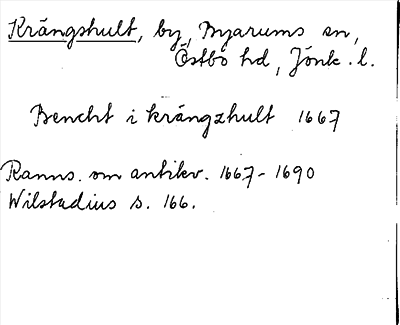 Krängshult, by, Byarums sn,
Östbo hd, Jönk. l.
Bencht i krängzhult 1667
Ranns. om antikv. 1667-1690
Wilstadius s. 166.